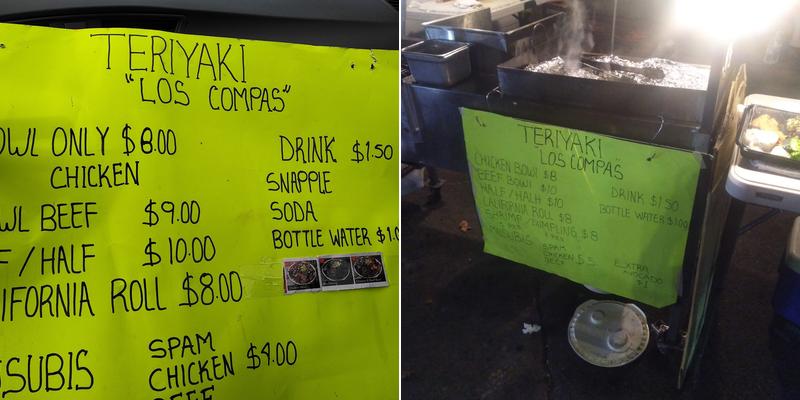 TERIYAKI
"LOS COMPAS"
OWL ONLY $8.00
CHICKEN
WL BEEF $9.00
F/HALF $10.00
IFORNIA ROLL $8.00
SUBIS
SPAM
CHICKEN $4.00
BEEF
DRINK $1.50
SNAPPLE
SODA
BOTTLE WATER $1.0
TERIYAKI
LOS COMPAS
CHICKEN BOWL $8
BEEF BOWL $10
HALF/HALF $10
CALIFORNIA ROLL $8
SHRIMP/DUMPLING $8
SPAM
CHICKEN $5
BEEF
DRINK $1.50
BOTTLE WATER $1.00
EXTRA
AVOCADO
$1